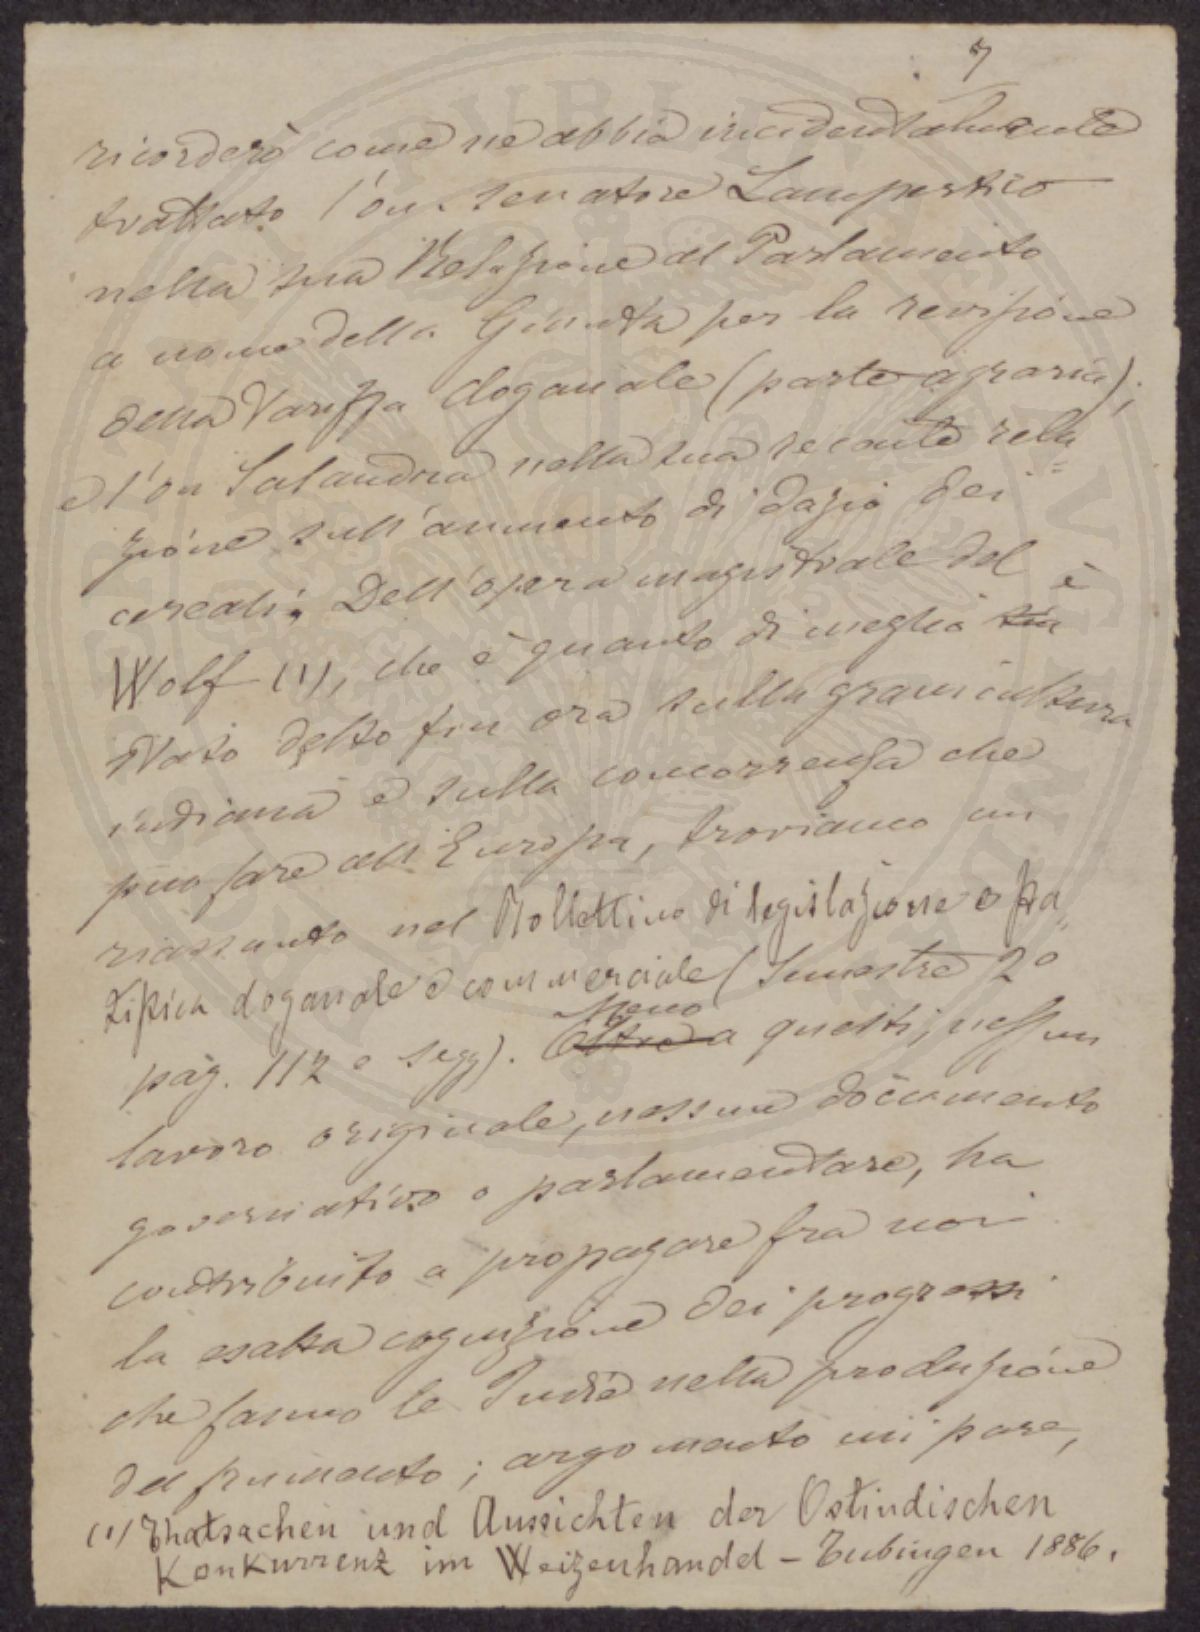 7
ricorderò come ne abbia incidentalmente
trattato l'on. senatore Lampertico
nella sua Relazione al Parlamento
a nome della Giunta per la revisione
della Tariffa doganale (parte agraria);
e l'on Salandra nella sua recente rela=
zione sull'aumento di dazio dei
cereali. Dell'opera magistrale del
Wolf (1), che è quanto di meglio è
stato detto fin ora sulla granicultura
indiana e sulla concorrenza che
può fare all'Europa, troviamo un
riassunto nel Bollettino di legislazione e sta
tistica doganale e commerciale (Semestre 2º
pag. 112 e segg). Oltre a questi, nessun
Meno
lavoro originale, nessun documento
governativo o parlamentare, ha
contribuito a propagare fra noi
la esatta cognizione dei progressi
che fanno le Indie nella produzione
del frumento; argomento mi pare,
(1) Thatsachen und Aussichten der Ostindischen
Konkurrenz im Weizenhandel - Tubingen 1886.